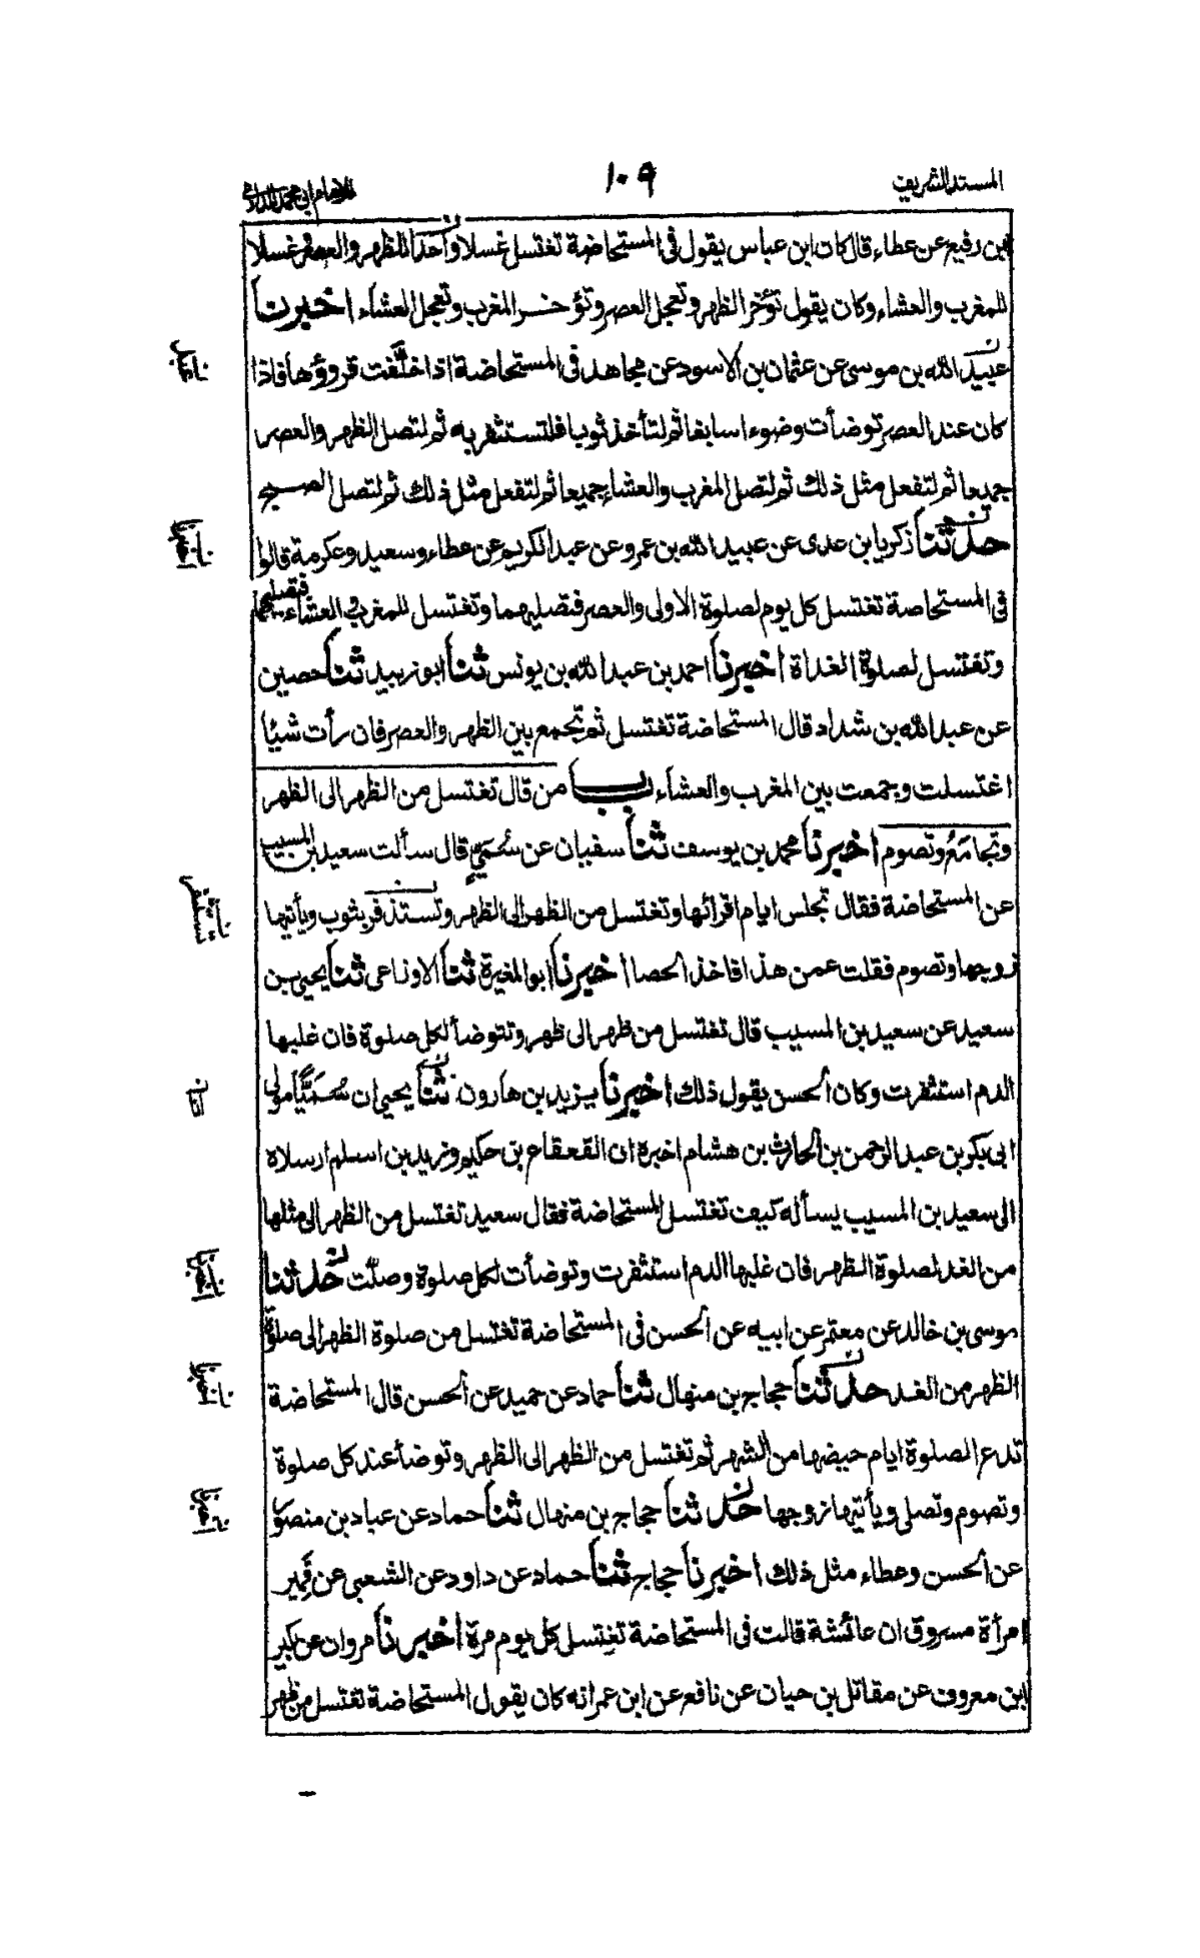 المسند الشريف ١٠٩ للامام ابي محمد الدارمي
ابن رفيع عن عطاء قال كان ابن عباس يقول في المستحاضة تغتسل غسلا واحدا للظهر والعصر وغسلا
للمغرب والعشاء وكان يقول تؤخر الظهر وتعجل العصر وتؤخر المغرب وتعجل العشاء اخبرنا
عبيد الله بن موسى عن عثمان بن الاسود عن مجاهد في المستحاضة اذا خلّفت قروؤها فاذا
كان عند العصر توضأت وضوءا سابغا ثم لتأخذ ثوبا فلتستثفر به ثم لتصل الظهر والعصر
جميعا ثم لتفعل مثل ذلك ثم لتصل المغرب والعشاء جميعا ثم لتفعل مثل ذلك ثم لتصل الصبح
حدثنا زكريا بن عدى عن عبيد الله بن عمرو عن عبد الكريم عن عطاء وسعيد وعكرمة قالوا
في المستحاضة تغتسل كل يوم لصلوة الاولى والعصر فتصليهما وتغتسل للمغرب والعشاء فتصليهما
وتغتسل لصلوة الغداة اخبرنا احمد بن عبد الله بن يونس ثنا ابو زبيد ثنا حصين
عن عبد الله بن شداد قال المستحاضة تغتسل ثم تجمع بين الظهر والعصر فان رأت شيئا
اغتسلت وجمعت بين المغرب والعشاء باب من قال تغتسل من الظهر الى الظهر
وتجامَعُ وتصوم اخبرنا محمد بن يوسف ثنا سفيان عن سُمَيٍّ قال سألت سعيد بن المسيب
عن المستحاضة فقال تجلس ايام اقرائها وتغتسل من الظهر الى الظهر وتستذفر بثوب ويأتيها
زوجها وتصوم فقلت عمن هذا فاخذ الحصا اخبرنا ابو المغيرة ثنا الاوزاعى ثنا يحيى بن
سعيد عن سعيد بن المسيب قال تغتسل من ظهر الى ظهر وتتوضأ لكل صلوة فان غلبها
الدم استثفرت وكان الحسن يقول ذلك اخبرنا يزيد بن هارون ثنا يحيى ان سُمَيًّا مولى
ابي بكر بن عبد الرحمن بن الحارث بن هشام اخبره ان القعقاع بن حكيم وزيد بن اسلم ارسلاه
الى سعيد بن المسيب يسأله كيف تغتسل المستحاضة فقال سعيد تغتسل من الظهر الى مثلها
من الغد لصلوة الظهر فان غلبها الدم استثفرت وتوضأت لكل صلوة وصلّت حدثنا
موسى بن خالد عن معتمر عن ابيه عن الحسن في المستحاضة تغتسل من صلوة الظهر الى صلوة
الظهر من الغد حدثنا حجاج بن منهال ثنا حماد عن حميد عن الحسن قال المستحاضة
تدع الصلوة ايام حيضها من الشهر ثم تغتسل من الظهر الى الظهر وتوضأ عند كل صلوة
وتصوم وتصلى ويأتيها زوجها حدثنا حجاج بن منهال ثنا حماد عن عباد بن منصور
عن الحسن وعطاء مثل ذلك اخبرنا حجاج ثنا حماد عن داود عن الشعبي عن قَمِير
امرأة مسروق ان عائشة قالت في المستحاضة تغتسل كل يوم مرة اخبرنا مروان عن بكير
ابن معروف عن مقاتل بن حيان عن نافع عن ابن عمر انه كان يقول المستحاضة تغتسل من ظهر